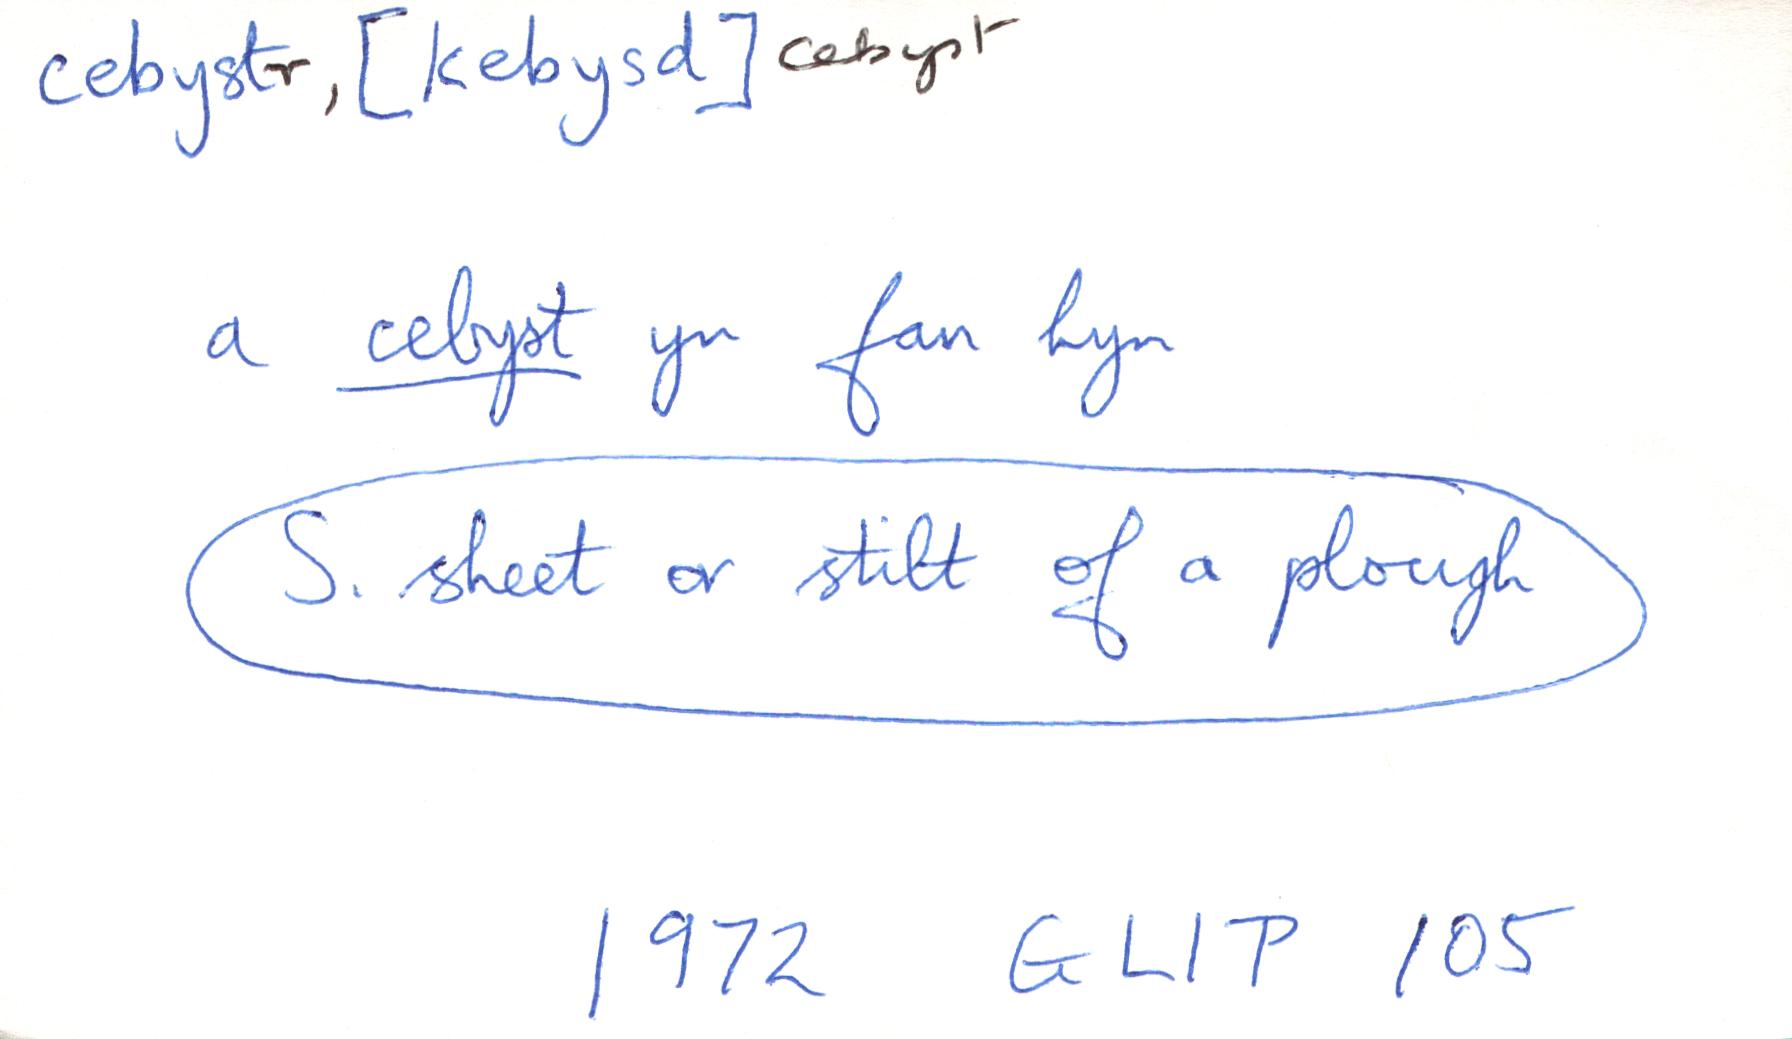 cebystr, [kebysd] cebyst
a cebyst yn fan hyn
S. sheet or stilt of a plough
1972 GLIP 105